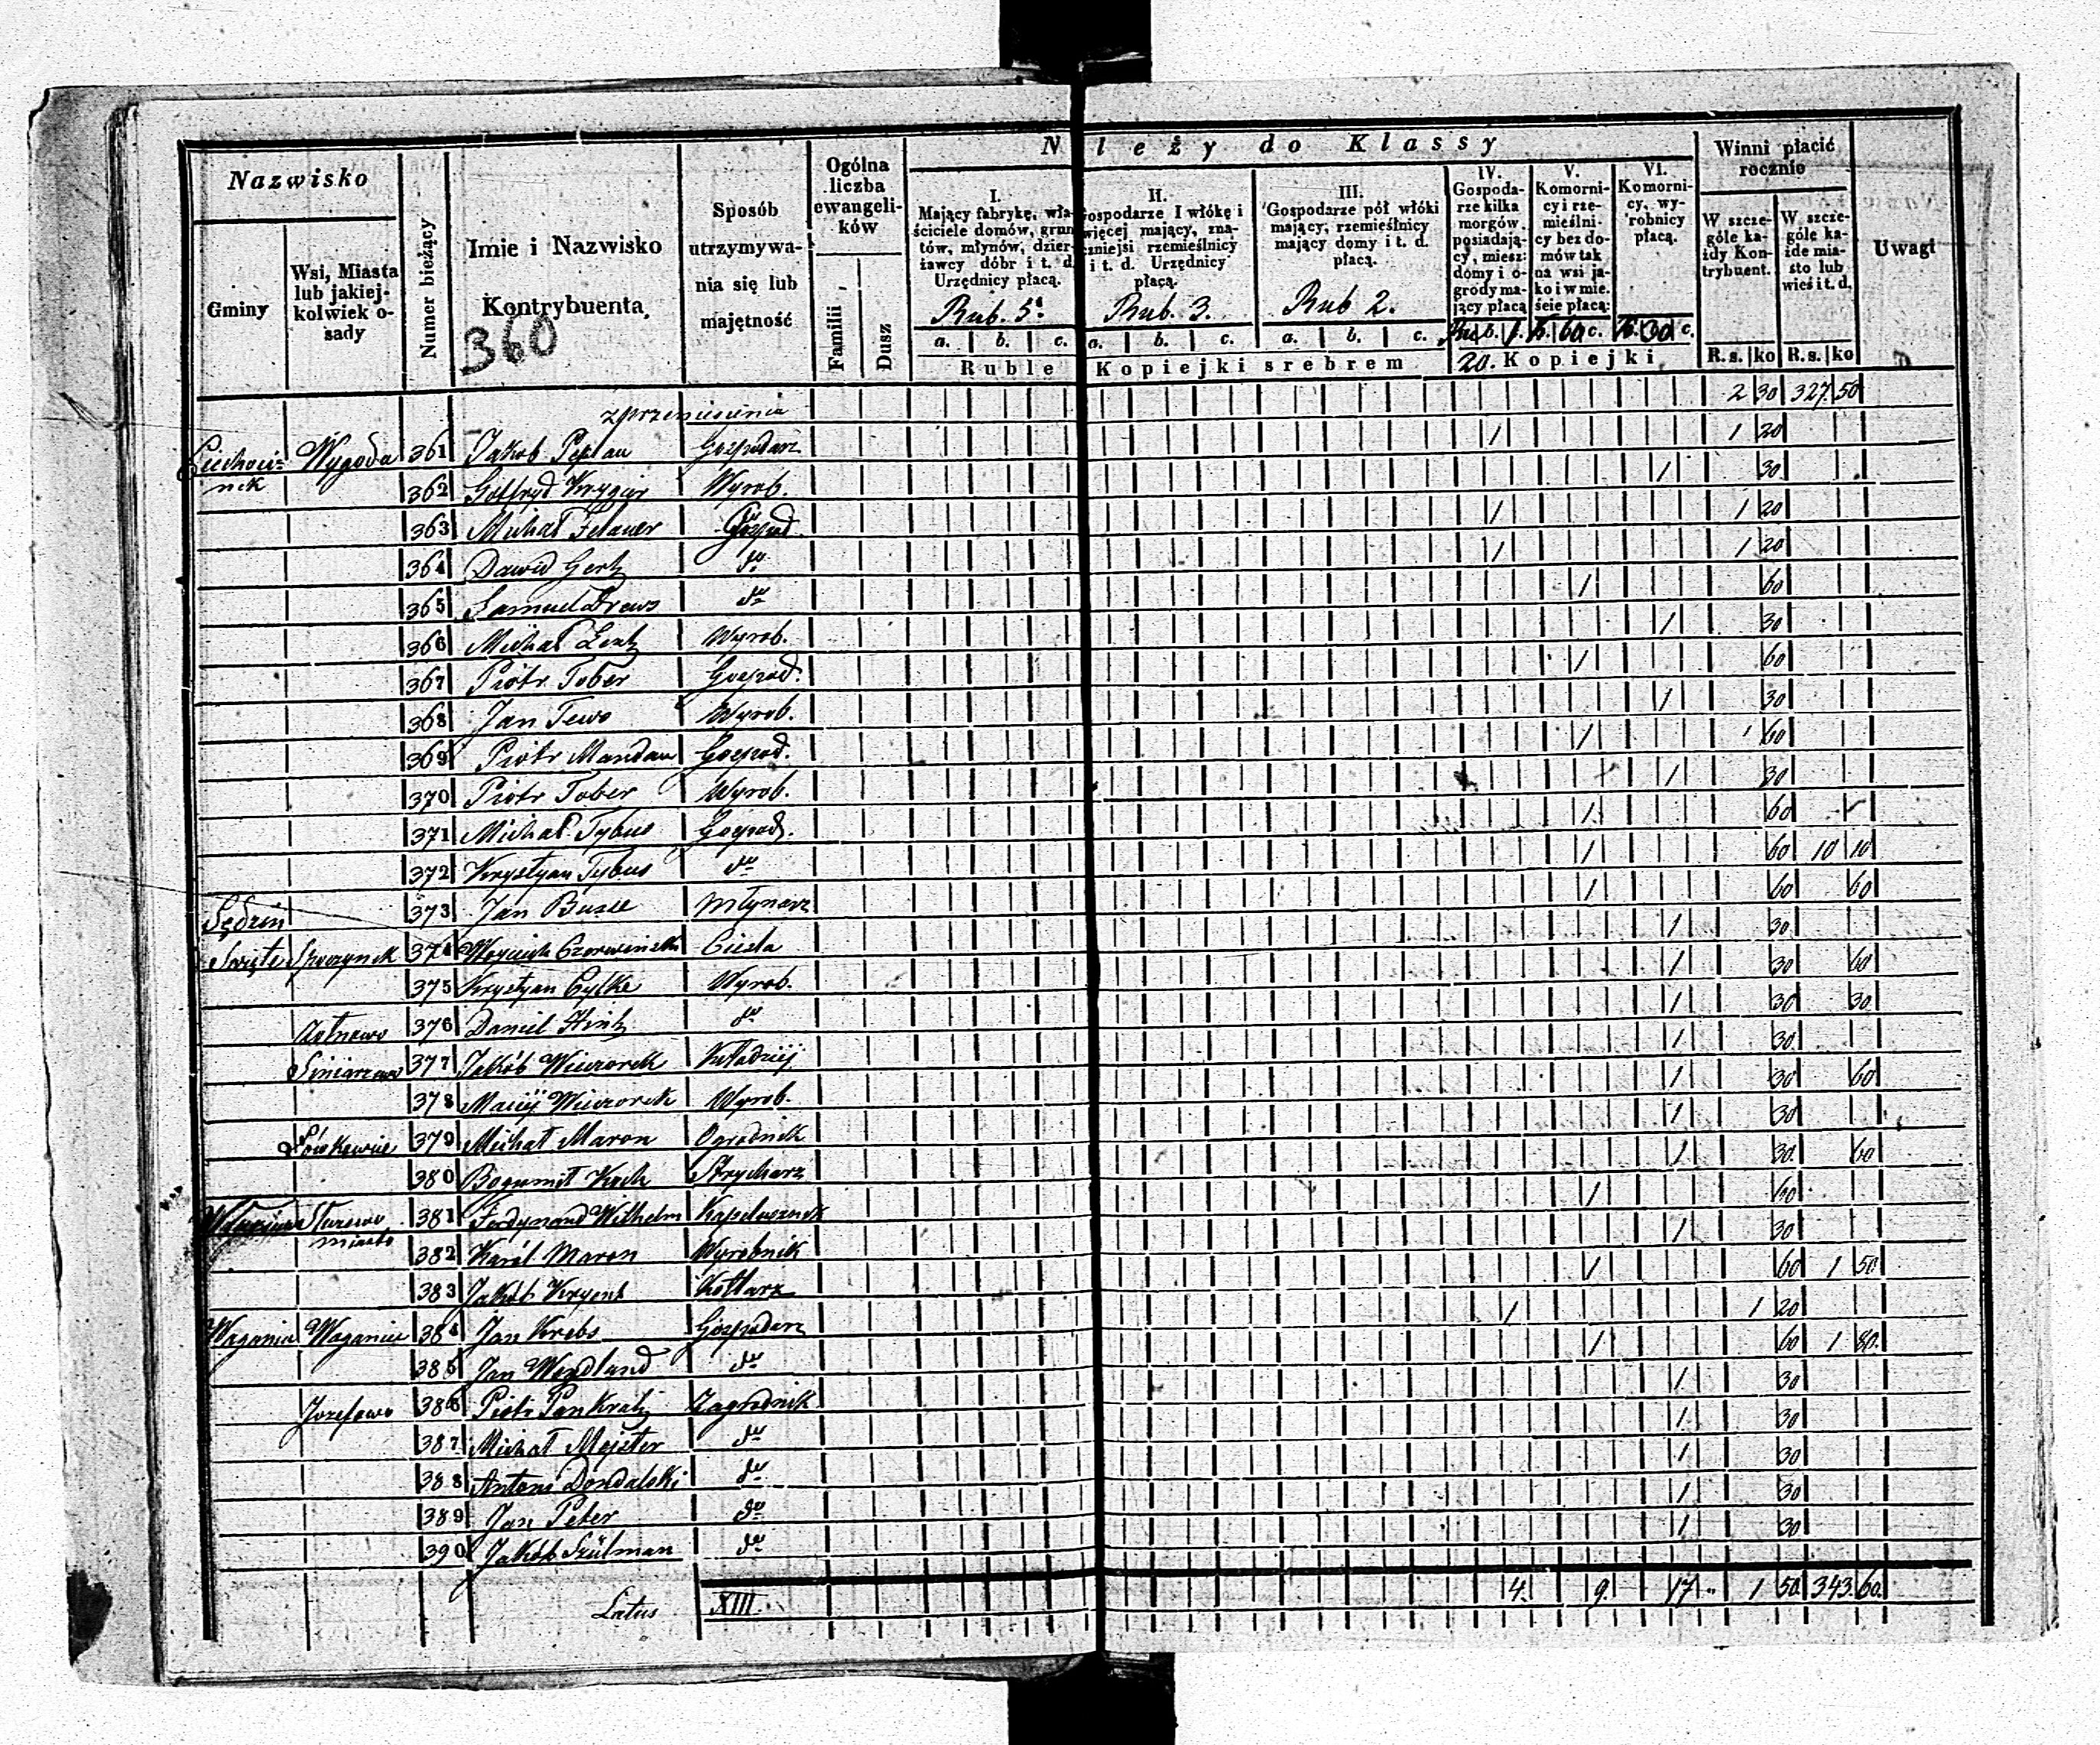 Należy do Klassy
Nazwisko
Gminy
Wsi, Miasta lub jakiej-kolwiek o-sady
Numer bieżący
Imie i Nazwisko Kontrybuenta.
360
Sposób utrzymywa-nia się lub majętność
Ogólna liczba ewangeli-ków
Familii
Dusz
I. Mający fabrykę, wła-ściciele domów, grun-tów, młynów, dzier-żawcy dóbr i t. d. Urzędnicy płacą.
Rub. 5.
II. Gospodarze I włókę i więcej mający, zna-czniejsi rzemieślnicy i t. d. Urzędnicy płacą.
Rub. 3.
III. Gospodarze pół włóki mający, rzemieślnicy mający domy i t. d. płacą.
Rub 2.
IV. Gospoda-rze kilka morgów posiadają-cy, miesz: domy i o-grody ma-jący płacą
Rub. 1.
V. Komorni-cy i rze-mieślni-cy bez do-mów tak na wsi ja-ko i w mie-ście płacą:
k. 60 c.
VI. Komorni-cy, wy-robnicy płacą.
k. 30 c.
Winni płacić rocznie
W szcze-góle ka-żdy Kon-trybuent.
W szcze-góle ka-żde mia-sto lub wieś i t. d.
Uwagi
a. b. c. a. b. c. a. b. c.
Ruble Kopiejki srebrem 20. Kopiejki R. s. ko R. s. ko
z przeniesienia 2 30 327. 50
Ciechoci-nek Wygoda 361 Jakob Peplau Gospodarz 1 1 20
362 Gottfryd Krygier Wyrob. 1 30
363 Michał Felauer Gospod. 1 1 20
364 Dawid Gertz do 1 1 20
365 Samuel Drews do 1 60
366 Michał Lentz Wyrob. 1 30
367 Piotr Tober Gospod. 1 60
368 Jan Tews Wyrob. 1 30
369 Piotr Mandau Gospod. 1 60
370 Piotr Tober Wyrob. 1 30
371 Michał Tybus Gospod. 1 60
372 Krystyan Tybus do 1 60 10 10
Sędzin 373 Jan Busse Młynarz 1 60 60
Święte Spoczynek 374 Woyciech Czerwinski Ciesla 1 30
375 Krystyan Cylke Wyrob. 1 30 60
376 Daniel Hintz do 1 30 30
Siniarzewo 377 Jakób Wieczorek Kołodziej 1 30
378 Maciej Wieczorek Wyrob. 1 30 60
379 Michał Maron Ogrodnik 1 30
380 Bogumił Koch Strycharz 1 30. 60
miasto 381 Ferdynand Wilhelm Kapelusznik 1 60
382 Karól Maron Wyrobnik 1 30
383 Jakób Kotlarz 1 60 1 50
Waganiec Waganiec 384 Jan Krebs Gospodarz 1 1 20
385 Jan Wendland do 1 60 1 80.
Jozefowo 386 Piotr Pankratz Zagrodnik 1 30
387 Michał Mejster do 1 30
388 Antoni Dondalski do 1 30
389 Jan Peter do 1 30
390 Jakób Szülman do 1 30
Latus XIII. 4. 9. 17 " 1 50 343. 60.